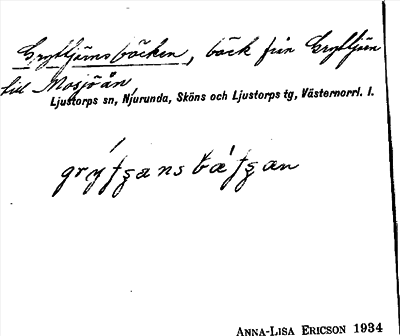 Gryttjärnsbäcken, bäck från Gryttjärn
till Mosjöån,
Ljustorps sn, Njurunda, Sköns och Ljustorps tg, Västernorrl. l.
ANNA-LISA ERICSON 1934